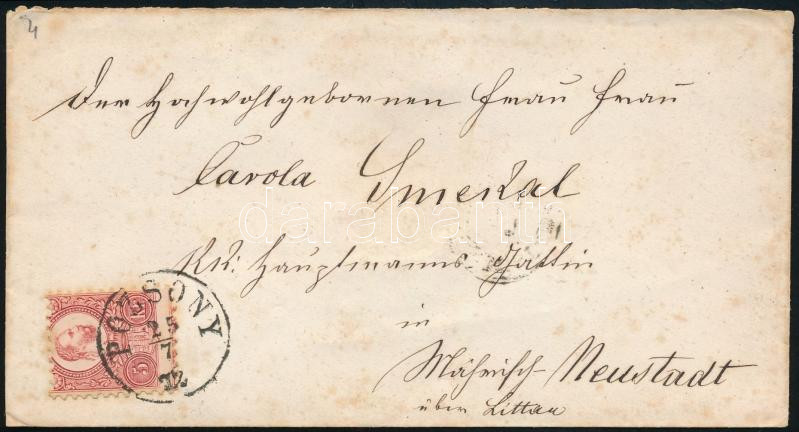 4
Der Hochwohlgebornen Frau Frau
Carola Smekal
KK: Hauptmanns Gattin
in
Mährisch-Neustadt
über Littau
POZSONY
25
7
5
darabanth